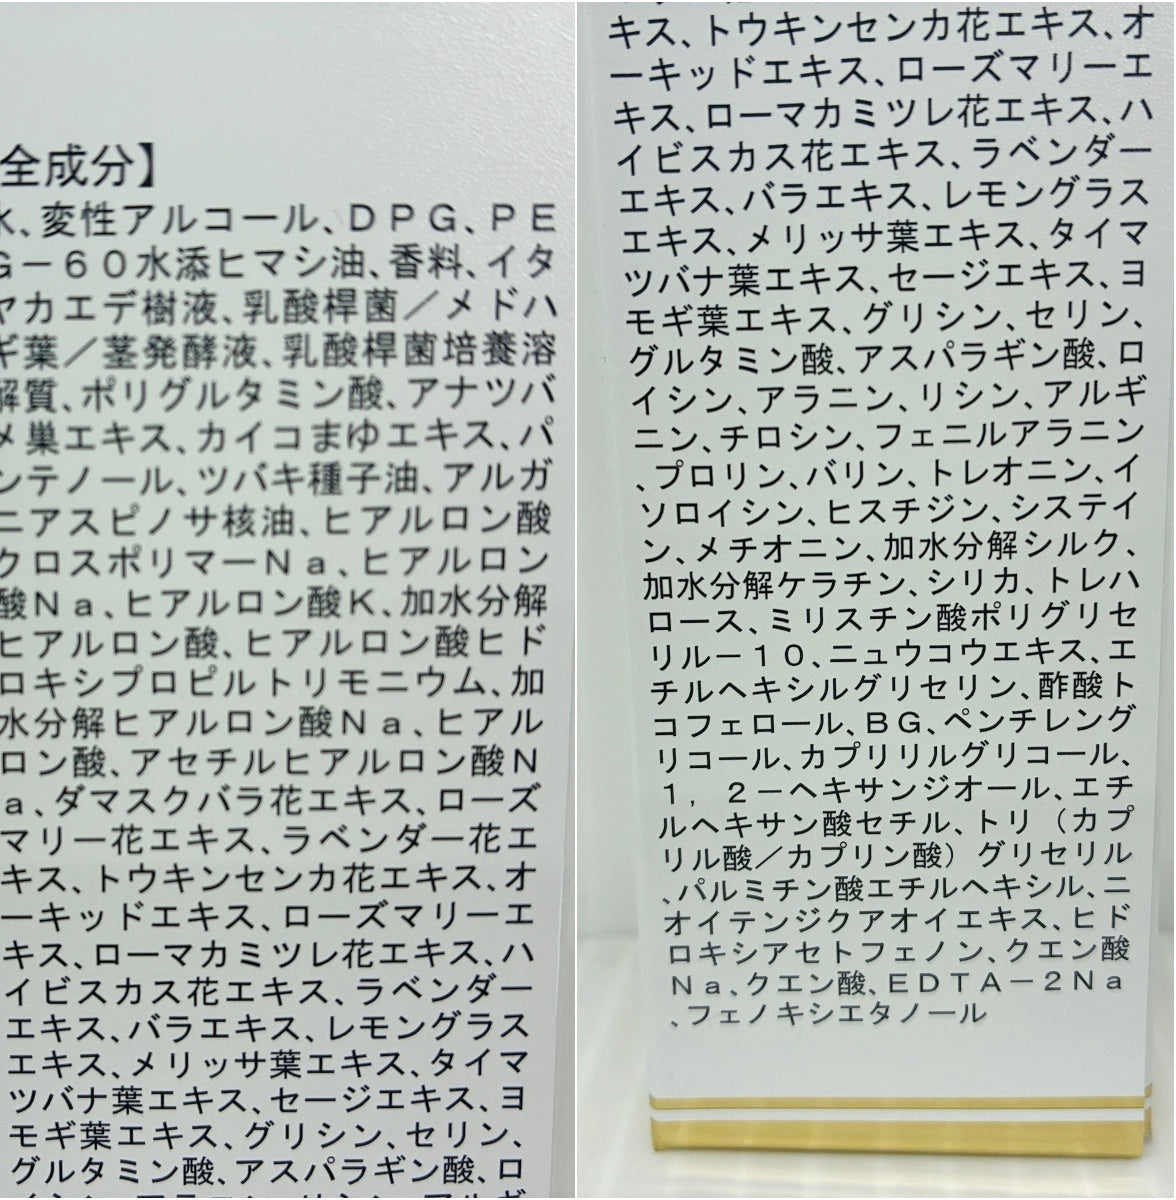 全成分】
水、変性アルコール、ＤＰＧ、ＰＥ
Ｇ－６０水添ヒマシ油、香料、イタ
ヤカエデ樹液、乳酸桿菌／メドハ
ギ葉／茎発酵液、乳酸桿菌培養溶
解質、ポリグルタミン酸、アナツバ
メ巣エキス、カイコまゆエキス、パ
ンテノール、ツバキ種子油、アルガ
ニアスピノサ核油、ヒアルロン酸
クロスポリマーＮａ、ヒアルロン
酸Ｎａ、ヒアルロン酸Ｋ、加水分解
ヒアルロン酸、ヒアルロン酸ヒド
ロキシプロピルトリモニウム、加
水分解ヒアルロン酸Ｎａ、ヒアル
ロン酸、アセチルヒアルロン酸Ｎ
ａ、ダマスクバラ花エキス、ローズ
マリー花エキス、ラベンダー花エ
キス、トウキンセンカ花エキス、オ
ーキッドエキス、ローズマリーエ
キス、ローマカミツレ花エキス、ハ
イビスカス花エキス、ラベンダー
エキス、バラエキス、レモングラス
エキス、メリッサ葉エキス、タイマ
ツバナ葉エキス、セージエキス、ヨ
モギ葉エキス、グリシン、セリン、
グルタミン酸、アスパラギン酸、ロ
キス、トウキンセンカ花エキス、オ
ーキッドエキス、ローズマリーエ
キス、ローマカミツレ花エキス、ハ
イビスカス花エキス、ラベンダー
エキス、バラエキス、レモングラス
エキス、メリッサ葉エキス、タイマ
ツバナ葉エキス、セージエキス、ヨ
モギ葉エキス、グリシン、セリン、
グルタミン酸、アスパラギン酸、ロ
イシン、アラニン、リシン、アルギ
ニン、チロシン、フェニルアラニン
、プロリン、バリン、トレオニン、イ
ソロイシン、ヒスチジン、システイ
ン、メチオニン、加水分解シルク、
加水分解ケラチン、シリカ、トレハ
ロース、ミリスチン酸ポリグリセ
リル－１０、ニュウコウエキス、エ
チルヘキシルグリセリン、酢酸ト
コフェロール、ＢＧ、ペンチレング
リコール、カプリリルグリコール、
１，２－ヘキサンジオール、エチ
ルヘキサン酸セチル、トリ（カプ
リル酸／カプリン酸）グリセリル
、パルミチン酸エチルヘキシル、ニ
オイテンジクアオイエキス、ヒド
ロキシアセトフェノン、クエン酸
Ｎａ、クエン酸、ＥＤＴＡ－２Ｎａ
、フェノキシエタノール